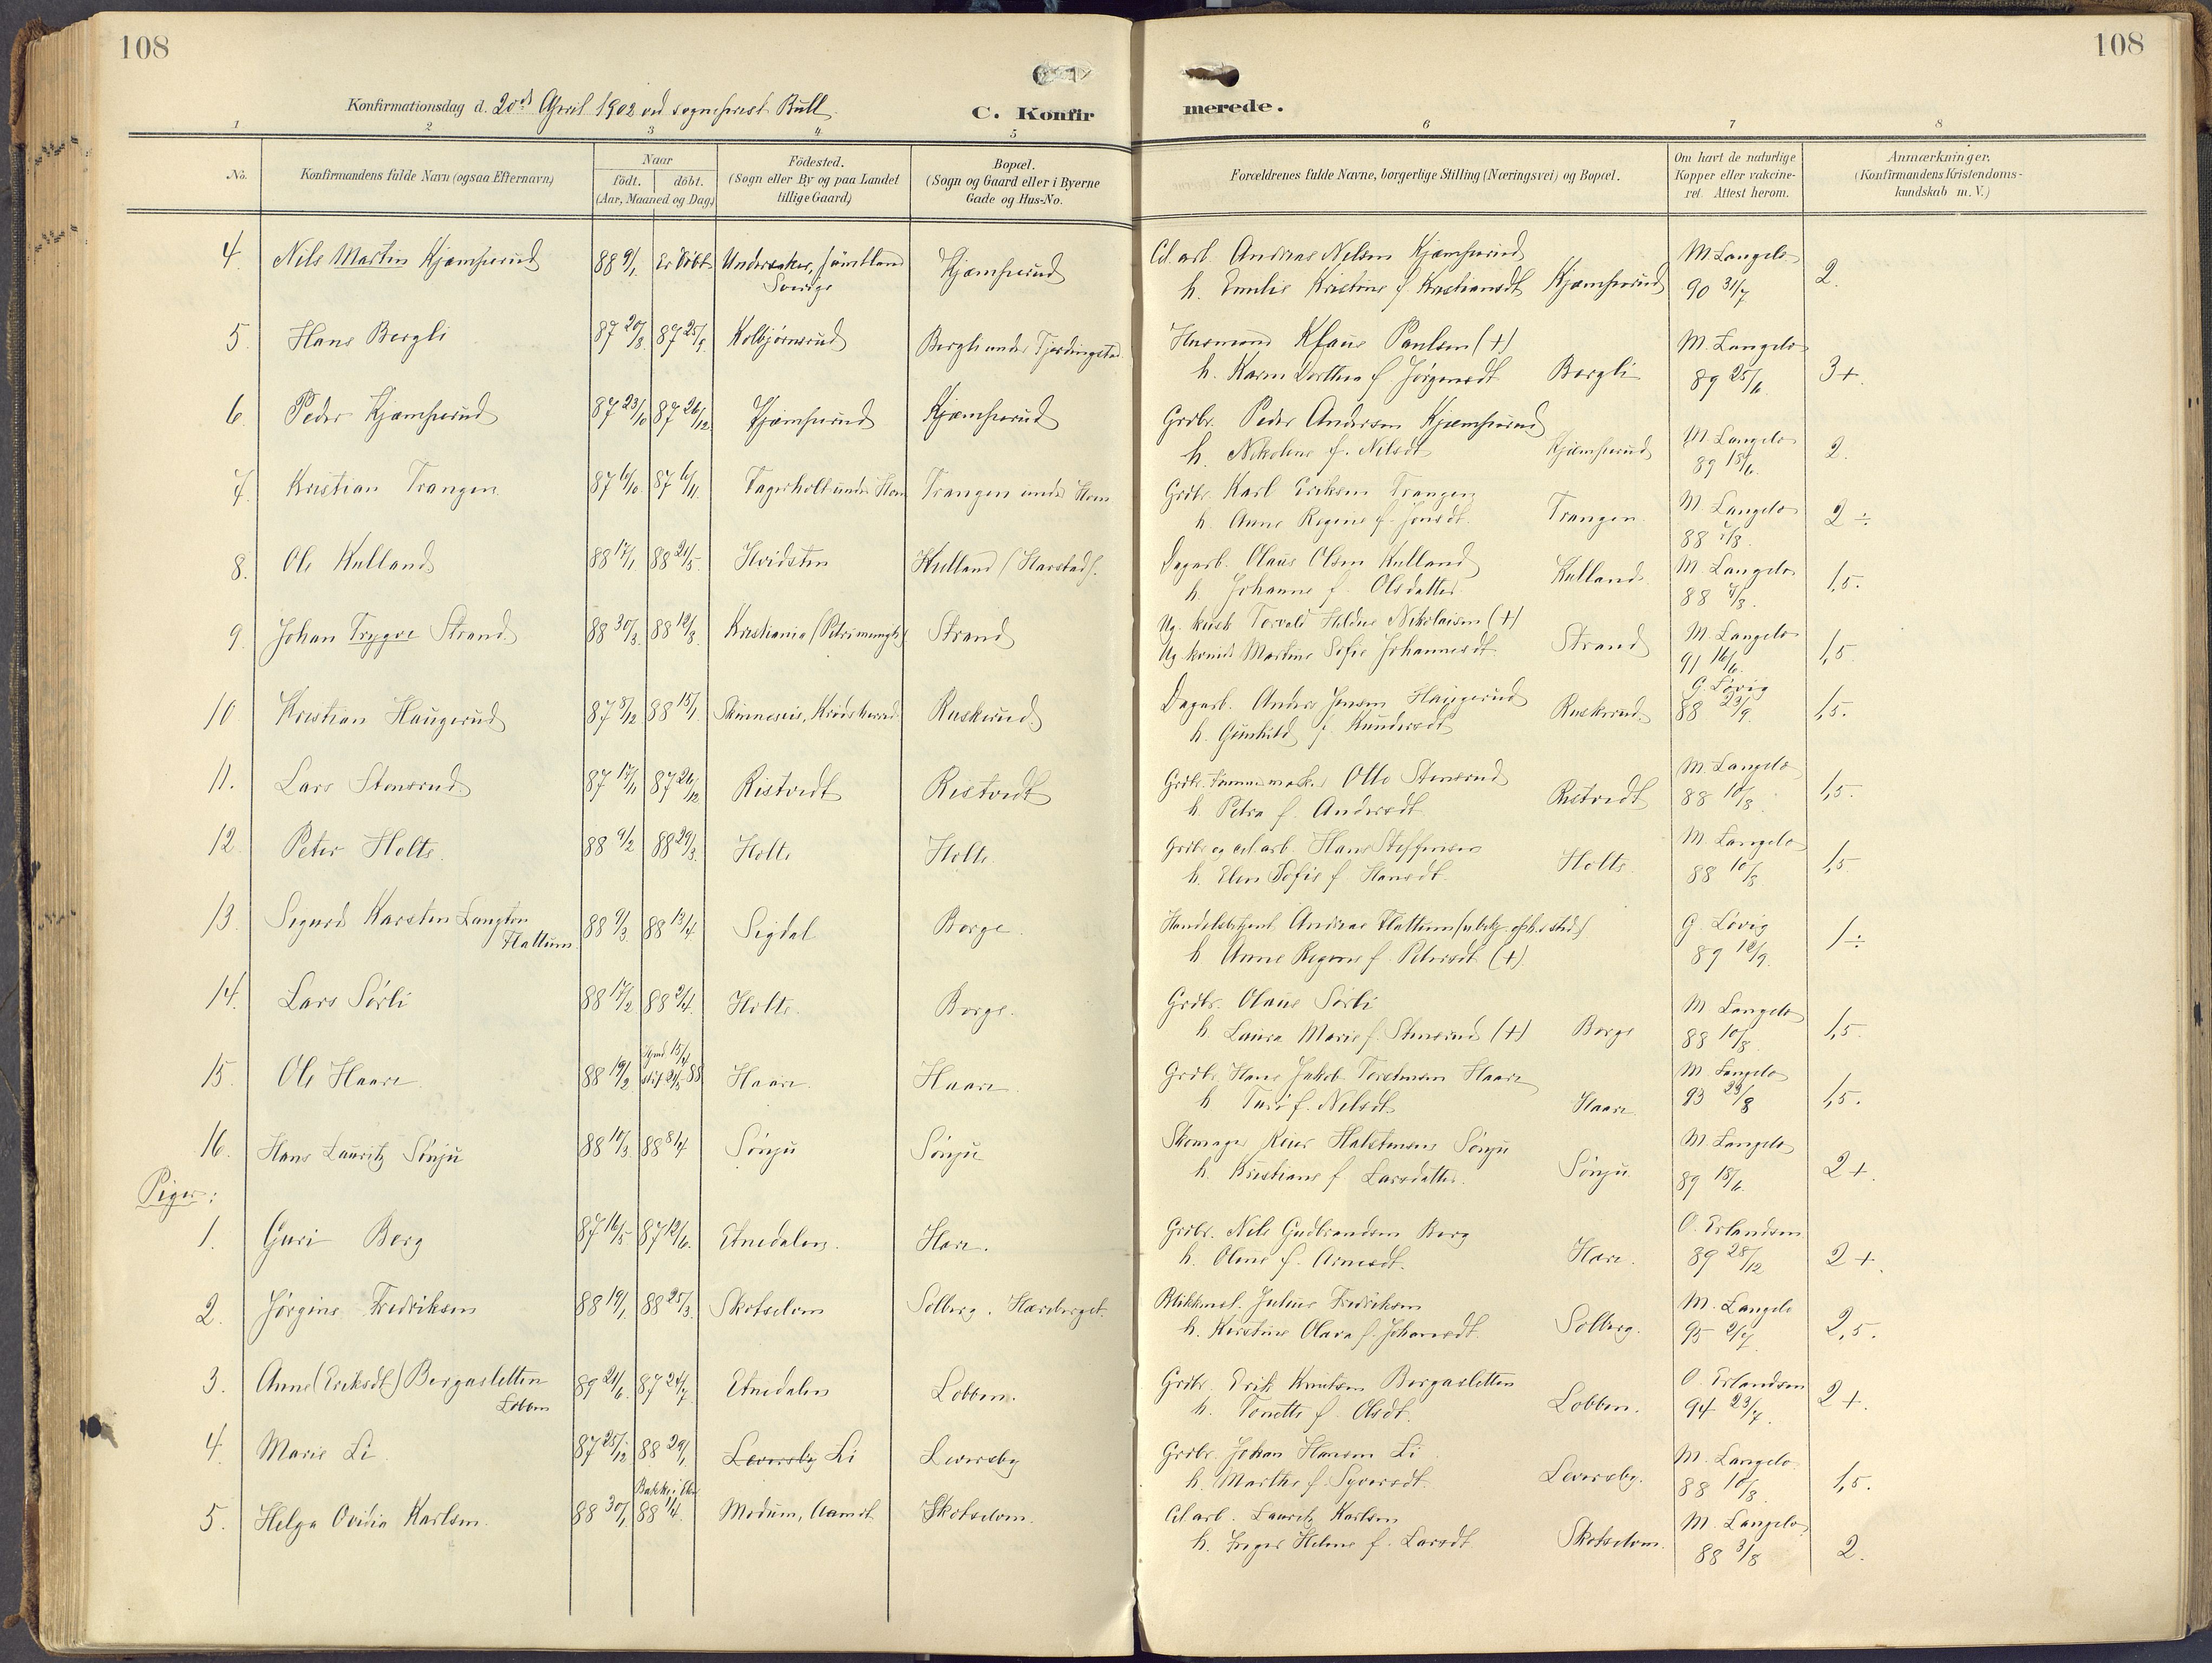 108
108
Konfirmationsdag d. 20de April 1902 ved sogneprest Bull.
C. Konfirmerede.
1 2 3 4 5 6 7 8
No.
Konfirmandens fulde Navn (ogsaa Efternavn)
Naar
födt. döbt.
(Aar, Maaned og Dag)
Födested.
(Sogn eller By og paa Landet
tillige Gaard)
Bopæl.
(Sogn og Gaard eller i Byerne
Gade og Hus-No.
Forældrenes fulde Navne, borgerlige Stilling (Næringsvei) og Bopæl.
Om havt de naturlige
Kopper eller vakcine-
ret. Attest herom.
Anmærkninger.
(Konfirmandens Kristendoms-
kundskab m. V.)
4. Nils Martin Kjæmperud 88 9/1 Er döbt Undersaker, Jämtland Kjæmperud Cel. arb. Andreas Nilsen Kjæmperud M. Langelo 2.
Sverige h. Emilie Kristine f. Kristiansdt. Kjæmperud 90 31/7
5. Hans Bergli 87 20/8 87 25/9 Kolbjørnsrud Bergli under Tjerdingstad Husmand Klaus Paulsen (+) M. Langelo 3+.
h. Karen Dorthea f. Jørgensdt. Bergli 89 25/6
6. Peder Kjæmperud 87 23/10 87 26/12 Kjæmperud Kjæmperud Grdbr. Peder Andersen Kjæmperud M. Langelo 2.
h. Nikoline f. Nilsdt. Kjæmperud 89 15/6.
7. Kristian Trangen 87 6/10 87 6/11. Fagerholt under Horn Trangen under Horn Grdbr. Karl Eriksen Trangen M. Langelo 2 ÷
h. Anne Regine f. Jensdt. Trangen. 88
8. Ole Kulland 88 17/1 88 21/5 Hvidsten Kulland (Harstad). Dagarb. Olaus Olsen Kulland M. Langelo 1,5.
h. Johanne f. Olsdatter Kulland. 88
9. Johan Trygve Strand 88 30/3. 88 12/8 Kristiania Strand Ug. kusk Torvald Nikolaisen (+) M. Langelo 1,5
Ug. kvinde Martine Sofie Johannesdt. Strand 91 16/6.
10. Kristian Haugerud 87 5/12 88 15/1. Krødsherred Ruskerud Dagarb. Anders Jensen Haugerud G. Lövig 1,5.
h. Gunhild f. Knudsdt. Ruskerud 88 23/9.
11. Lars Stensrud 87 17/11 87 26/12 Ristvedt Ristvedt Grdbr. Otto Stensrud M. Langelo 1,5.
h. Petra f. Andersdt. Ristvedt 88 10/8
12. Peter Holte. 88 9/2 88 29/3. Holte Holte. Grdbr. og cel. arb. Hans Steffensen M. Langelo 1,5
h. Elen Sofie f. Hansdt. Holte 88 10/8
13. Sigurd Karsten Langton 88 9/3. 88 13/4 Sigdal Borge. Handelsbetjent Andreas Flattum G. Lövig 1 ÷
Flattum h. Anne Regine f. Petersdt. (+). 89 12/9.
14. Lars Sörli 88 17/2 88 2/4. Holte. Borge. Grdbr. Olaus Sörli M. Langelo 1,5.
h. Laura Marie f. Stensrud (+) Borge 88 10/8
15. Ole Haare 88 19/2. hjmd. 15/4 Haare. Haare. Grdbr. Hans Jakob Torstensen Haare M. Langelo 1,5.
stf. 21/5 88 h. Turi f. Nilsdt. Haare 93 23/8
16. Hans Lauritz Sönju 88 10/3. 88 8/4 Sönju Sönju Skomager Halstensen Sönju M. Langelo 2+.
h. Kristiane f. Larsdatter. Sönju 89 18/6.
Piger:
1. Guri Berg 87 16/5 87 12/6. Etnedalen. Hare. Grdbr. Nils Gudbrandsen Berg O. Erlandsen 2+.
h. Oline f. Arnesdt. Hare. 89 28/12
2. Jørgine Fredriksen 88 19/1. 88 25/3. Skotselven Solberg. Hæreberget. Blikkensl. Julius Fredriksen M. Langelo 2,5.
h. Kirstine Olava f. Johansdt. Solberg. 95 2/7
3. Anne (Eriksdt.) Bergasletten 89 21/6. 87 24/7 Etnedalen Lobben. Grdbr. Erik Knutsen Bergasletten O. Erlandsen 2+.
Lobben h. Tonette f. Olsdt. Lobben. 94 23/7.
4. Marie Li 87 25/12 88 29/1. Leversby Li Leversby Grdbr. Johan Hansen Li M. Langelo 1,5.
h. Marthe f. Syversdt. Leversby. 88 10/8.
5. Helga Ovidia Karlsen. 88 30/1. 88 1/4. Modum, Aamot Skotselven. Cel. arb. Lauritz Karlsen M. Langelo 2.
h. Inger Helene f. Larsdt. Skotselven. 88 3/8